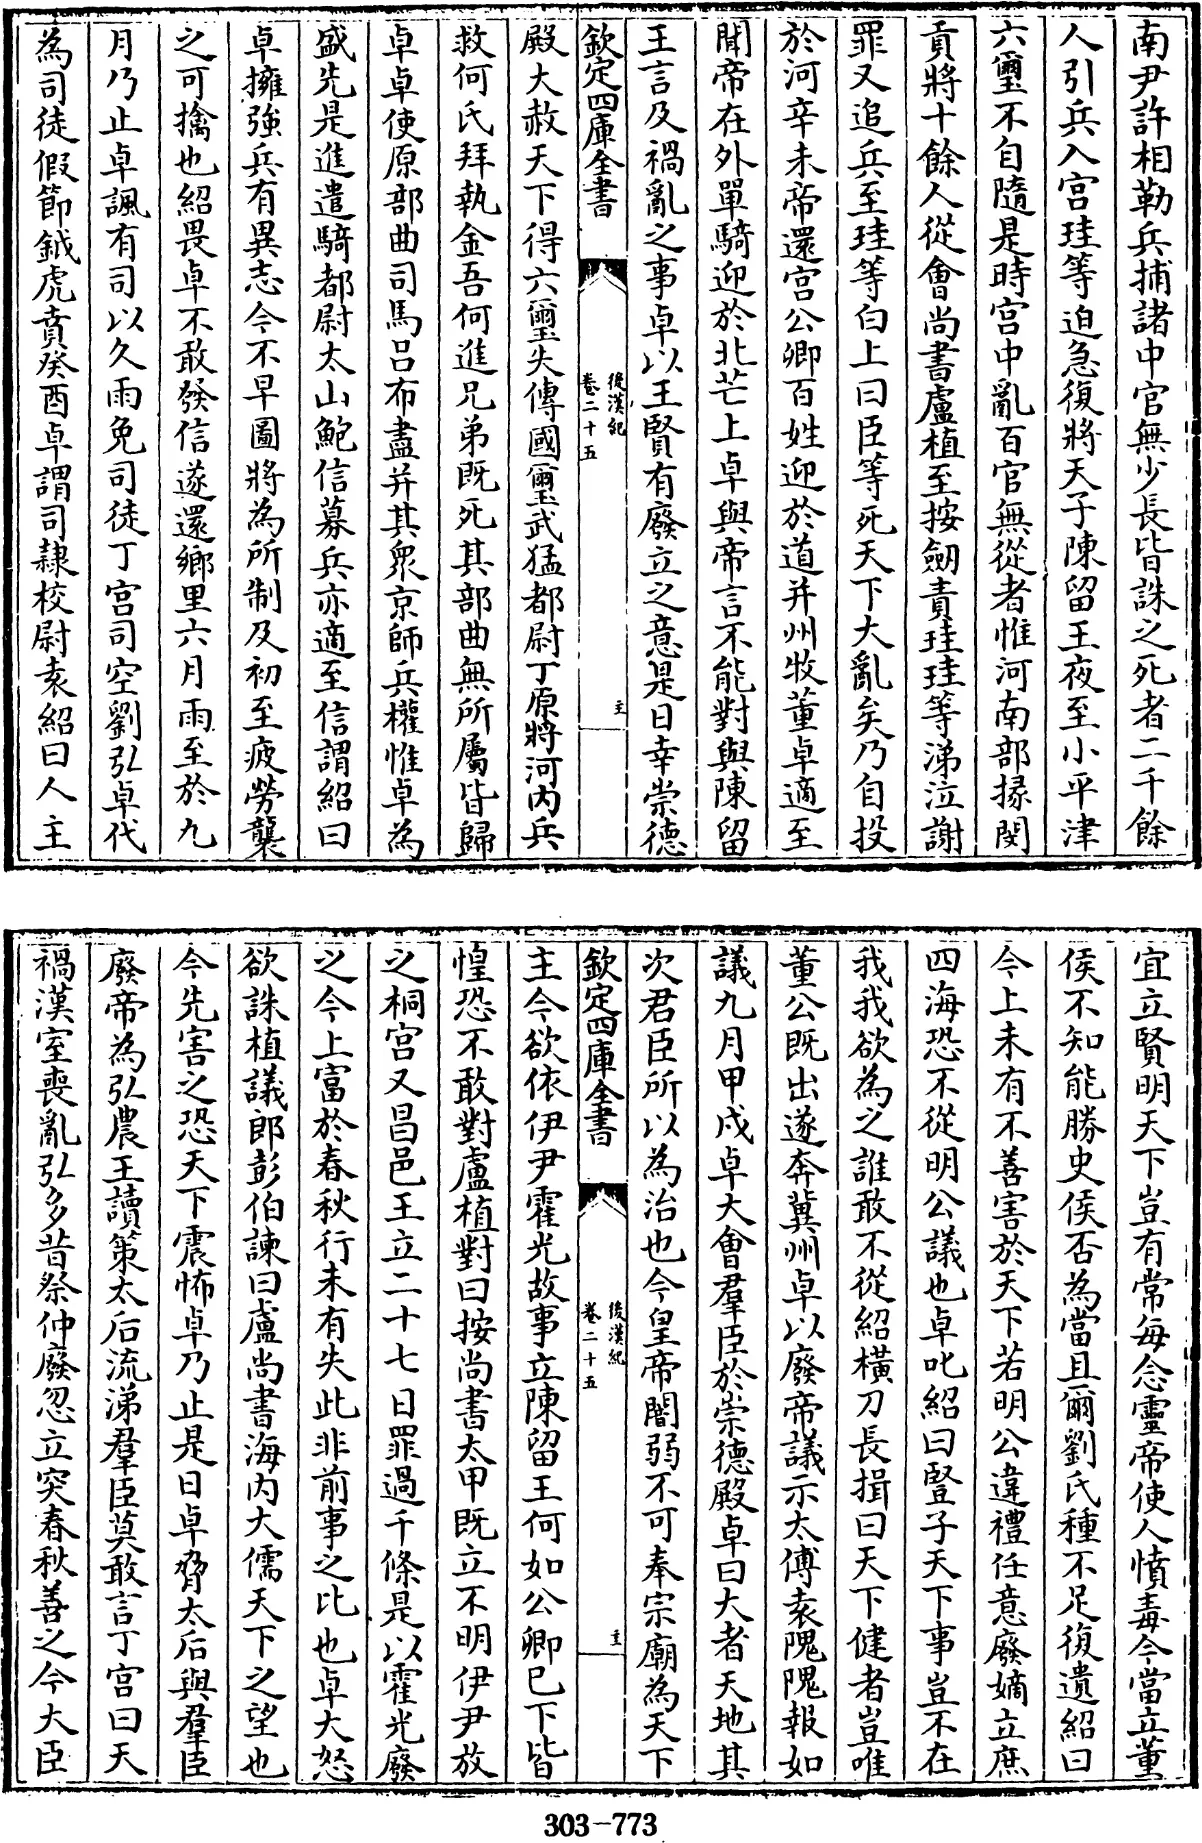 南尹許相勒兵捕諸中官無少長皆誅之死者二千餘
人引兵入宫珪等迫急復將天子陳留王夜至小平津
六璽不自隨是時宫中亂百官無從者惟河南部掾閔
貢將十餘人從會尚書盧植至按劒責珪珪等涕泣謝
罪又追兵至珪等白上曰臣等死天下大亂矣乃自投
於河辛未帝還宫公卿百姓迎於道并州牧董卓適至
聞帝在外單騎迎於北芒上卓與帝言不能對與陳留
王言及禍亂之事卓以王賢有廢立之意是日幸崇德
欽定四庫全書
後漢紀
卷二十五
殿大赦天下得六璽失傳國璽武猛都尉丁原將河内兵
救何氏拜執金吾何進兄弟既死其部曲無所屬皆歸
卓卓使原部曲司馬吕布盡并其衆京師兵權惟卓為
盛先是進遣騎都尉太山鮑信募兵亦適至信謂紹曰
卓擁強兵有異志今不早圖將為所制及初至疲勞襲
之可擒也紹畏卓不敢發信遂還鄉里六月雨至於九
月乃止卓諷有司以久雨免司徒丁宫司空劉弘卓代
為司徒假節鉞虎賁癸酉卓謂司隸校尉袁紹曰人主
宜立賢明天下豈有常每念靈帝使人憤毒今當立董
侯不知能勝史侯否為當且爾劉氏種不足復遺紹曰
今上未有不善害於天下若明公違禮任意廢嫡立庶
四海恐不從明公議也卓叱紹曰豎子天下事豈不在
我我欲為之誰敢不從紹横刀長揖曰天下健者豈唯
董公既出遂奔冀州卓以廢帝議示太傅袁隗隗報如
議九月甲戌卓大會羣臣於崇德殿卓曰大者天地其
次君臣所以為治也今皇帝闇弱不可奉宗廟為天下
欽定四庫全書
後漢紀
卷二十五
主今欲依伊尹霍光故事立陳留王何如公卿已下皆
惶恐不敢對盧植對曰按尚書太甲既立不明伊尹放
之桐宫又昌邑王立二十七日罪過千條是以霍光廢
之今上富於春秋行未有失此非前事之比也卓大怒
欲誅植議郎彭伯諫曰盧尚書海内大儒天下之望也
今先害之恐天下震怖卓乃止是日卓脅太后與羣臣
廢帝為弘農王讀策太后流涕羣臣莫敢言丁宫曰天
禍漢室喪亂弘多昔祭仲廢忽立突春秋善之今大臣
303-773